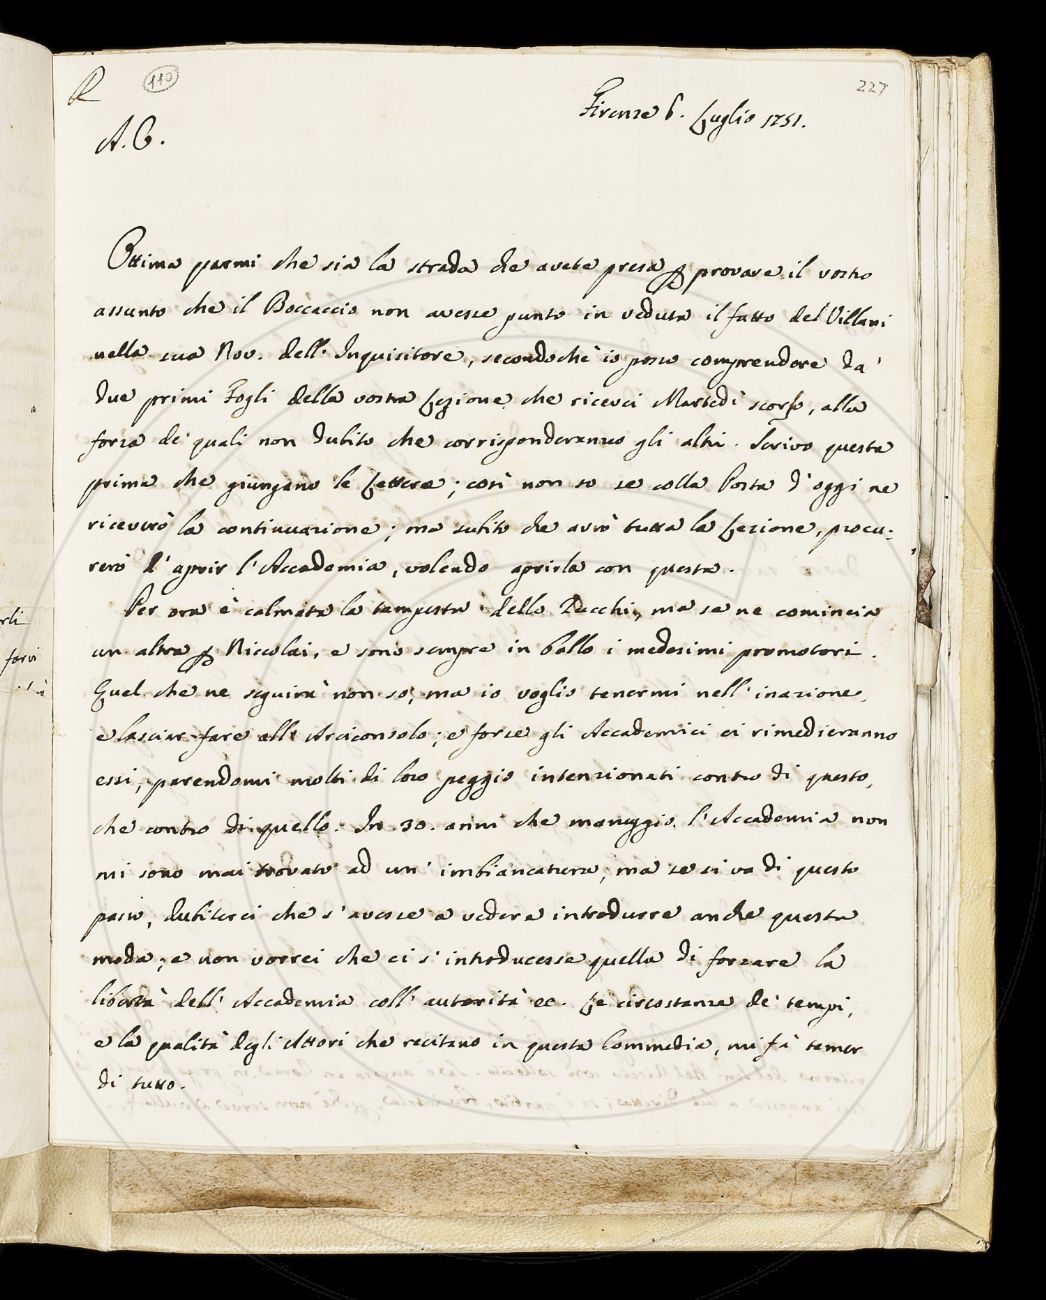 R 110 227
Firenze 6. Luglio 1751.
A. C.
Ottima parmi che sia la strada che avete presa p provare il vostro
assunto che il Boccaccio non avesse punto in veduta il fatto del Villani
nella sua Nov. dell' Inquisitore, secondochè io posso comprendere da'
due primi Fogli della vostra Lezione che ricevei Martedì scorso, alla
forza de' quali non dubito che corrisponderanno gli altri. Scrivo questa
prima che giungano le Lettere; così non so se colla Posta d'oggi ne
riceverò la continuazione; ma subito che avrò tutta la Lezione, procu:
rerò d'aprir l'Accademia, volendo aprirla con questa.
Per ora è calmata la tempesta dello Zucchi, ma se ne comincia
un altra p Niccolai, e sono sempre in ballo i medesimi promotori.
Quel che ne seguirà non so; ma io voglio tenermi nell' inazione,
e lasciar fare all' Arciconsolo; e forse gli Accademici ci rimedieranno
essi, parendomi molti di loro peggio intenzionati contro di questo,
che contro di quello. In 30. anni che maneggio l'Accademia non
mi sono mai trovato ad un' imbiancatura, ma se si va di questo
passo, dubiterei che s'avesse a vedere introdurre anche questa
moda; e non vorrei che ci s'introducesse quella di forzare la
libertà dell' Accademia coll' autorità ec. Le circostanze de' tempi,
e la qualità degli Attori che recitano in questa Commedia, mi fà temer
di tutto.